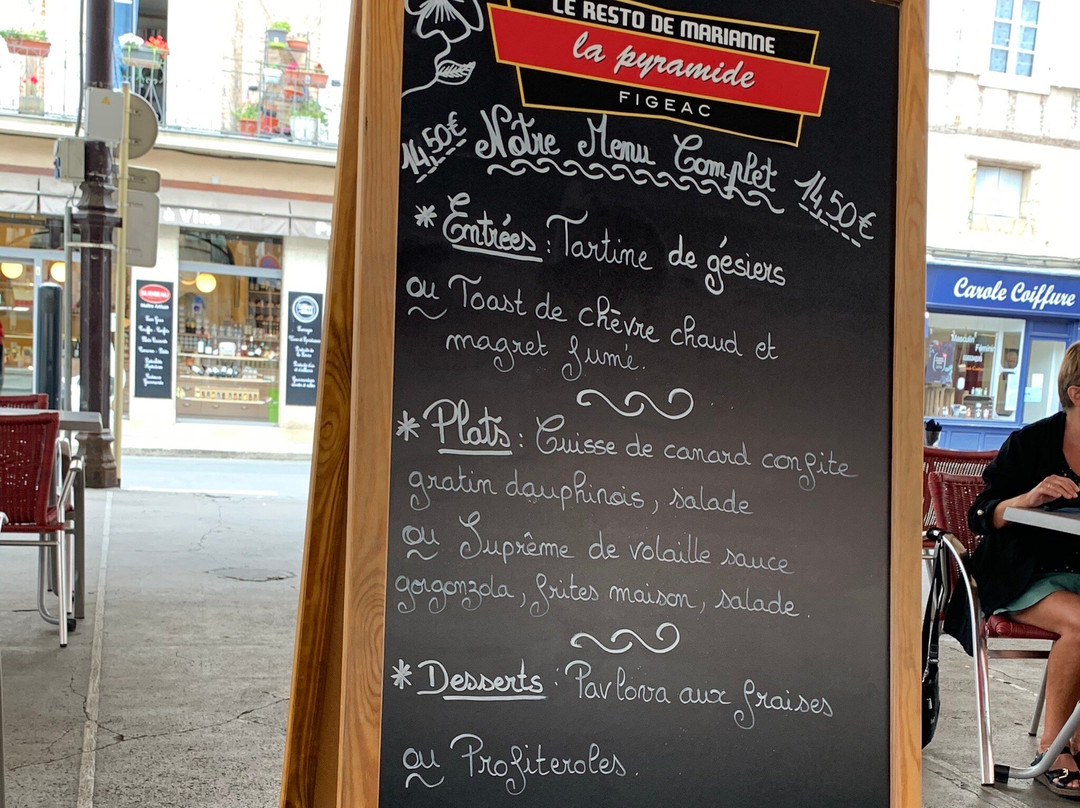 LE RESTO DE MARIANNE
la pyramide
FIGEAC
14,50€ Nôtre Menu Complet 14,50€
* Entrées : Tartine de gésiers
ou Toast de chèvre chaud et
magret fumé.
* Plats : Cuisse de canard confite
gratin dauphinois, salade
ou Suprême de volaille sauce
gorgonzola, frites maison, salade.
* Desserts : Pavlova aux fraises
ou Profiteroles.
Vins
Carole Coiffure
Masculin Féminin